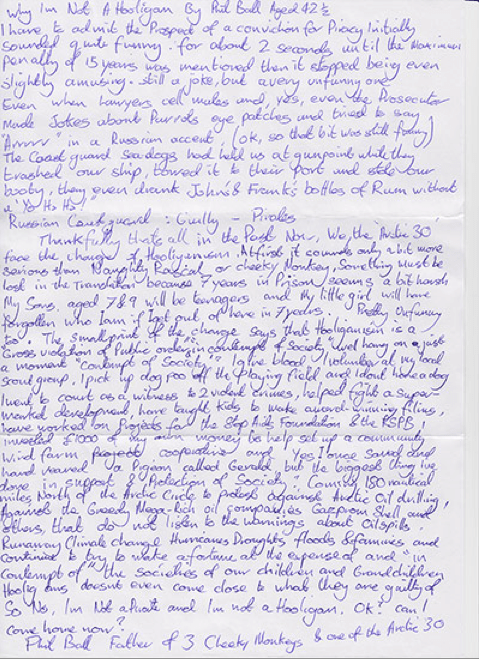 Why I'm Not A Hooligan By Phil Ball Aged 42½
I have to admit the Prospect of a conviction for Piracy Initially
sounded quite funny. for about 2 seconds until the Maximum
Penalty of 15 years was mentioned then it stopped being even
slightly amusing. still a joke, but a very unfunny one
Even when Lawyers cell mates and, yes, even the Prosecutor
made Jokes about Parrots eye patches and tried to say
"Arrrrr" in a Russian accent, (OK, so that bit was still funny)
The Coast guard seadogs had held us at gunpoint while they
trashed our ship, towed it to their port and stole our
booty, they even drank John's & Frank's bottles of Rum without
a 'Yo Ho Ho'!
Russian Coastguard : Guilty - Pirates
Thankfully thats all in the Past Now, We, the Arctic 30
face the charge of Hooliganism. At first it sounds only a bit more
serious than Naughty Rascal or cheeky Monkey, Something must be
lost in the Translation because 7 years in Prison seems a bit harsh
My Sons, aged 7 & 9 will be teenagers and My little girl will have
forgotten who I am if I get out of here in 7 years. Pretty Unfunny
too. The small print of the charge says that Hooliganism is a
"Gross violation of Public order, in contempt of Society" well hang on a just
a moment "Contempt of Society". I give blood, I volunteer at my local
scout group, I pick up dog poo off the playing field, and I dont have a dog
I went to court as a witness to 2 violent crimes, helped fight a super-
market development, have taught kids to make award-winning films,
have worked on Projects for the Stop Aids Foundation & the RSPB, I
invested £1000 of my own money to help set up a community
wind farm cooperative and yes I once saved and
hand reared a Pigeon, called Gerald, but the biggest thing Ive
done in support & Protection of Society? Coming 180 nautical
miles North of the Arctic Circle to protest against Arctic Oil drilling,
Against the Greedy Mega-rich oil companies Gazprom Shell and
others, that do not listen to the warnings about Oil spills.
Runaway Climate change Hurricanes Droughts floods & famines and
continue to try to make a fortune at the expense of and "in
contempt of" the societies of our children and Grandchildren
Hooligans, doesnt even come close to what they are guilty of
So No, I'm Not a Pirate and I'm not a Hooligan. OK? can I
come home now?
Phil Ball Father of 3 Cheeky Monkeys & one of the Arctic 30